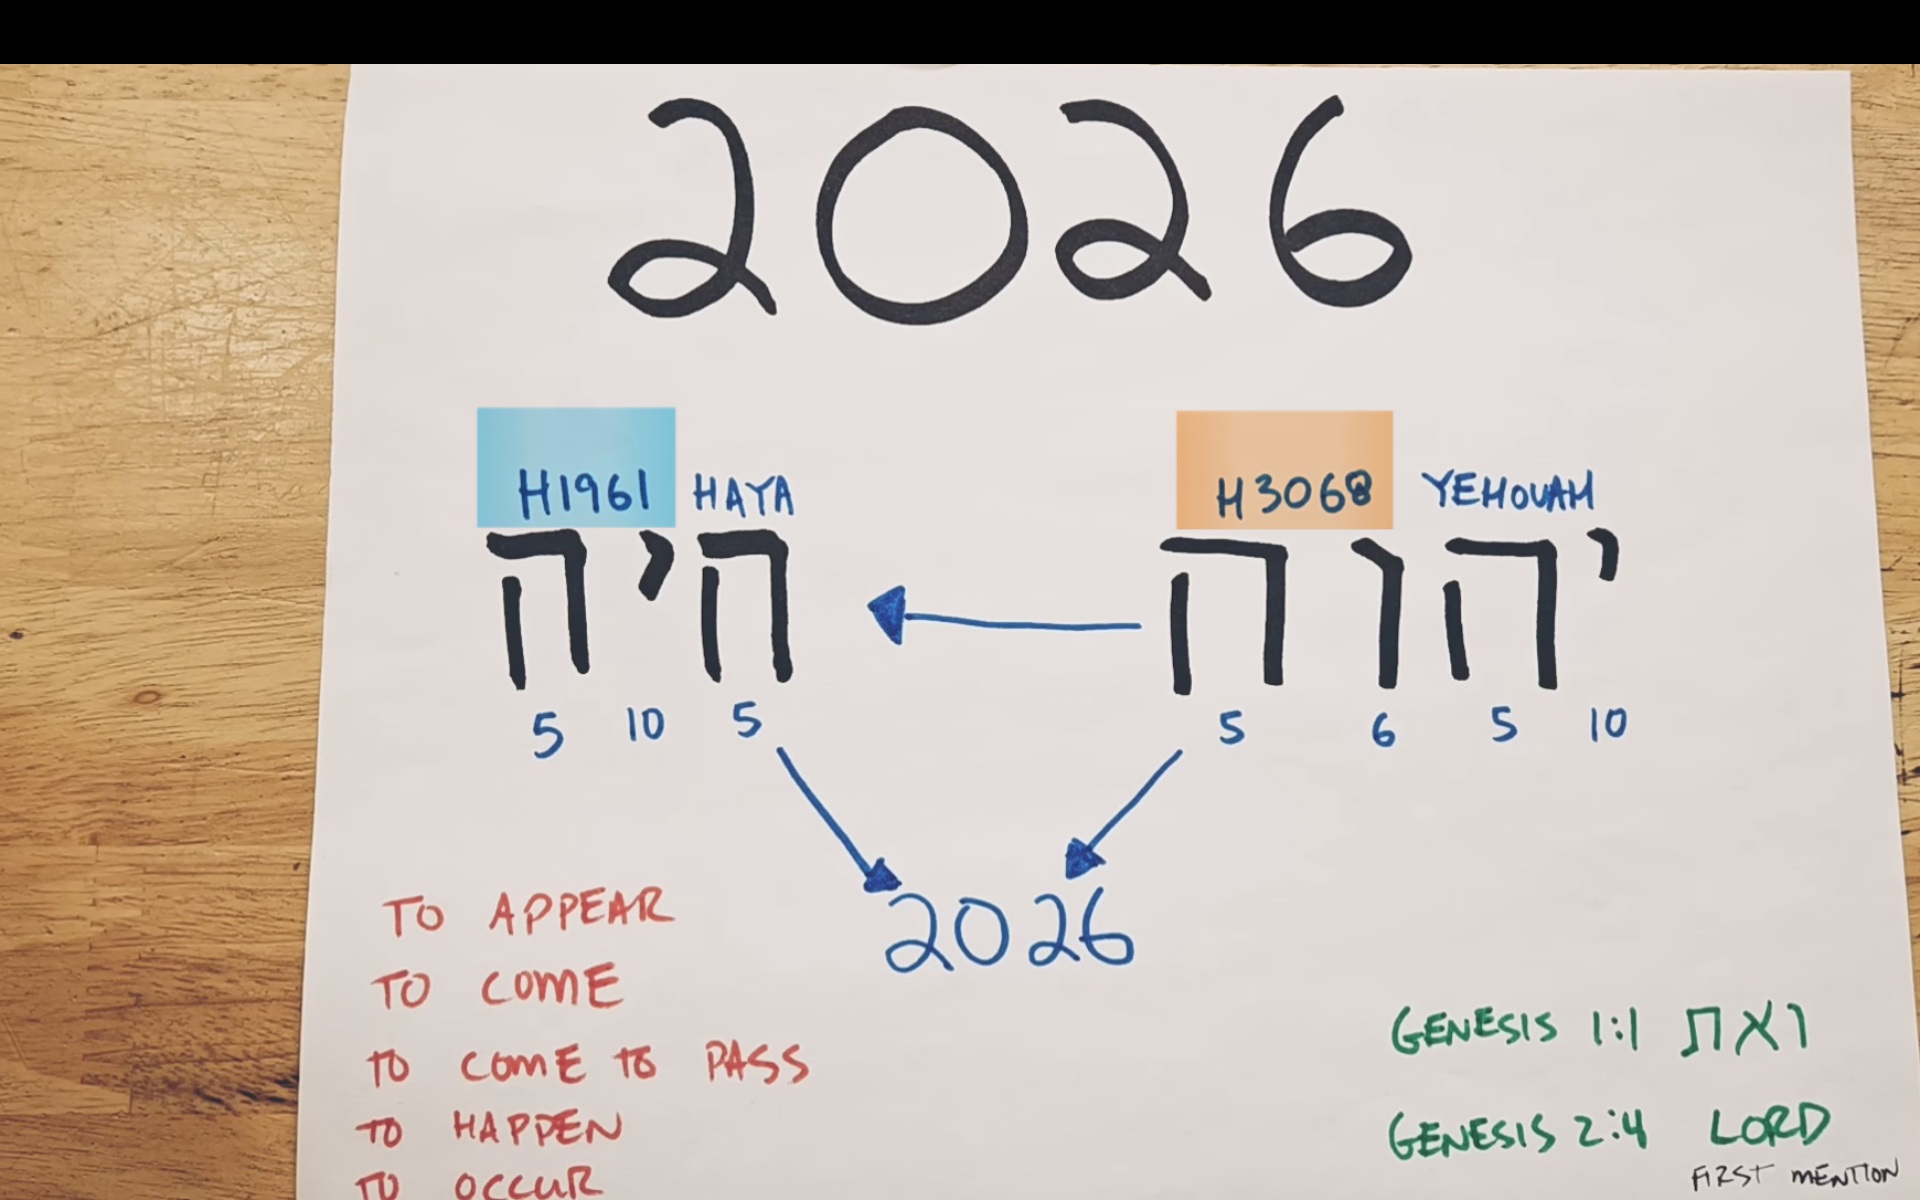 2026
H1961 HAYA
H3068 YEHOVAH
היה
יהוה
5 10 5
5 6 5 10
2026
TO APPEAR
TO COME
TO COME TO PASS
TO HAPPEN
TO OCCUR
GENESIS 1:1 ואת
GENESIS 2:4 LORD
FIRST MENTION